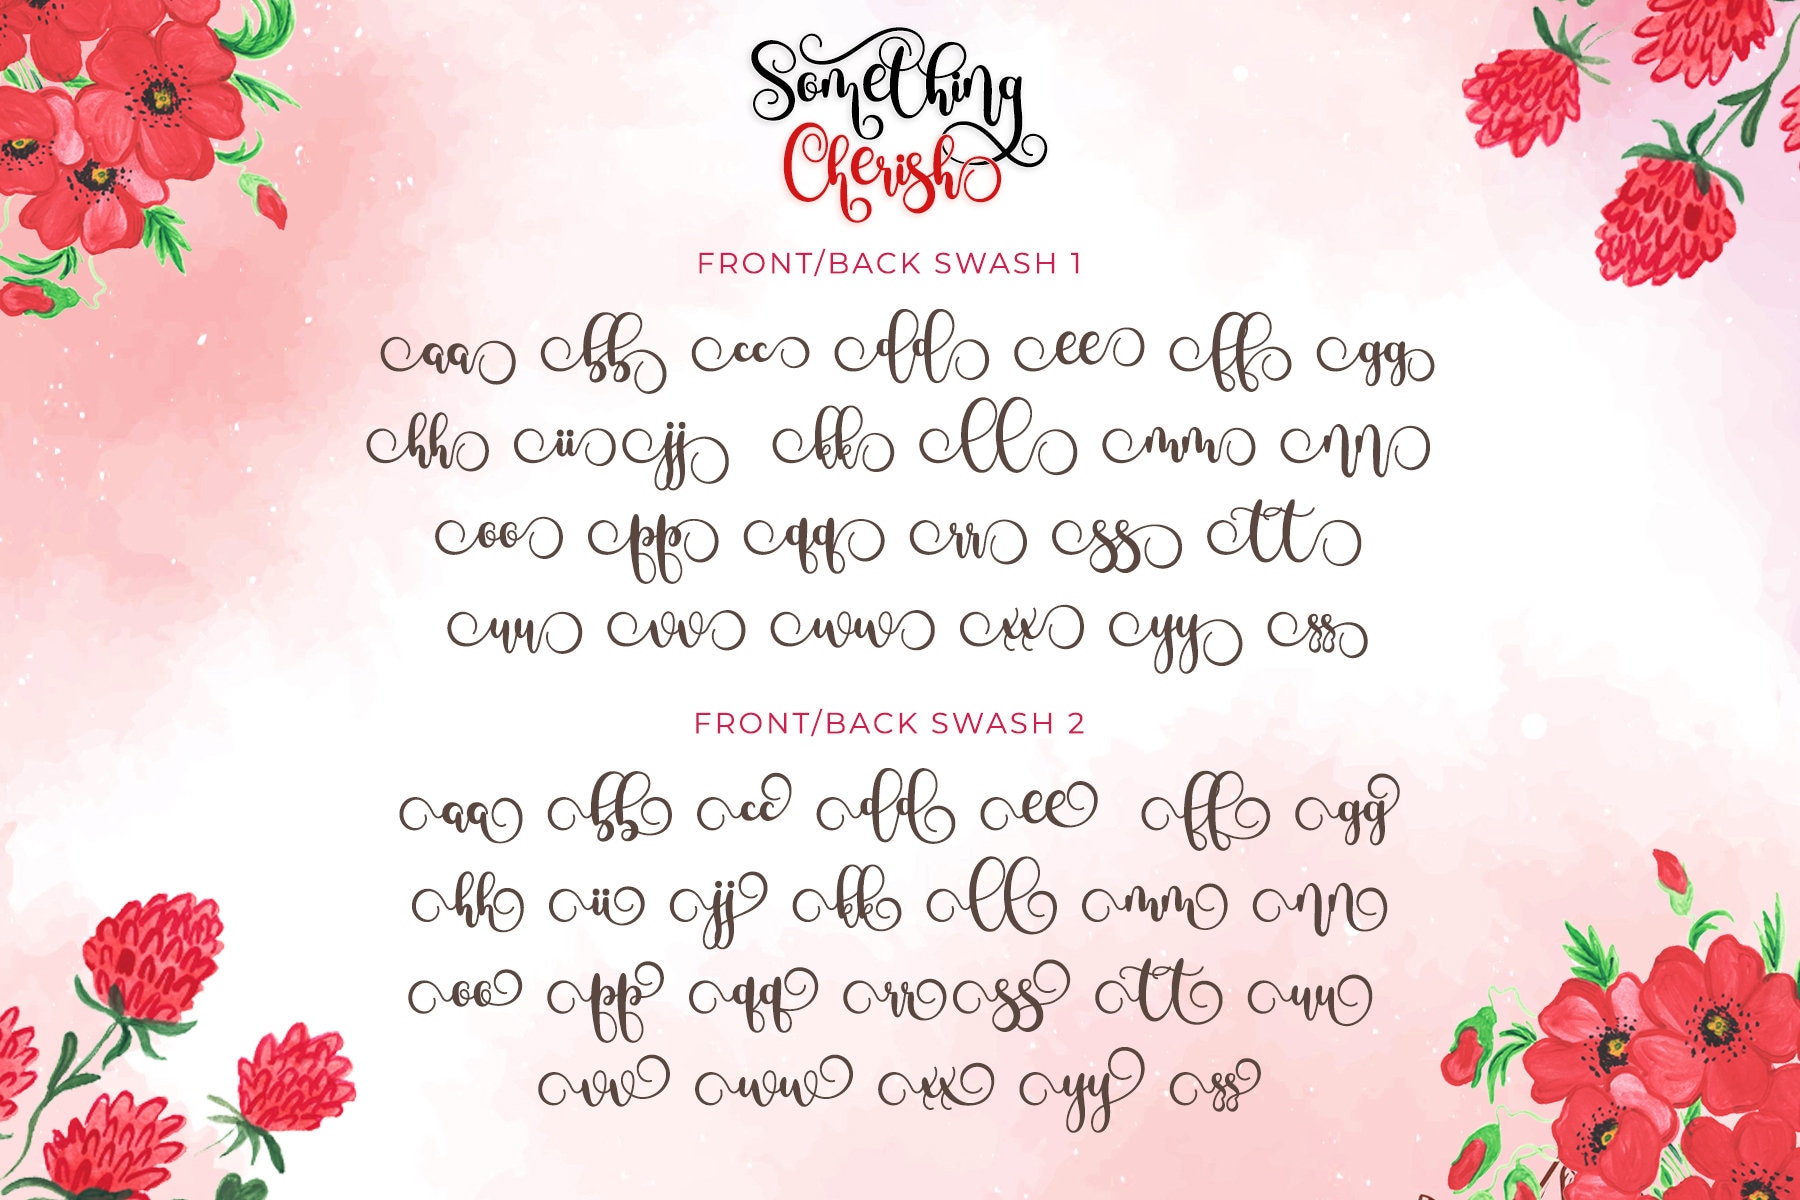 Something
Cherish
FRONT/BACK SWASH 1
aa bb cc dd ee ff gg
hh ii jj kk ll mm nn
oo pp qq rr ss tt
uu vv ww xx yy zz
FRONT/BACK SWASH 2
aa bb cc dd ee ff gg
hh ii jj kk ll mm nn
oo pp qq rr ss tt uu
vv ww xx yy zz